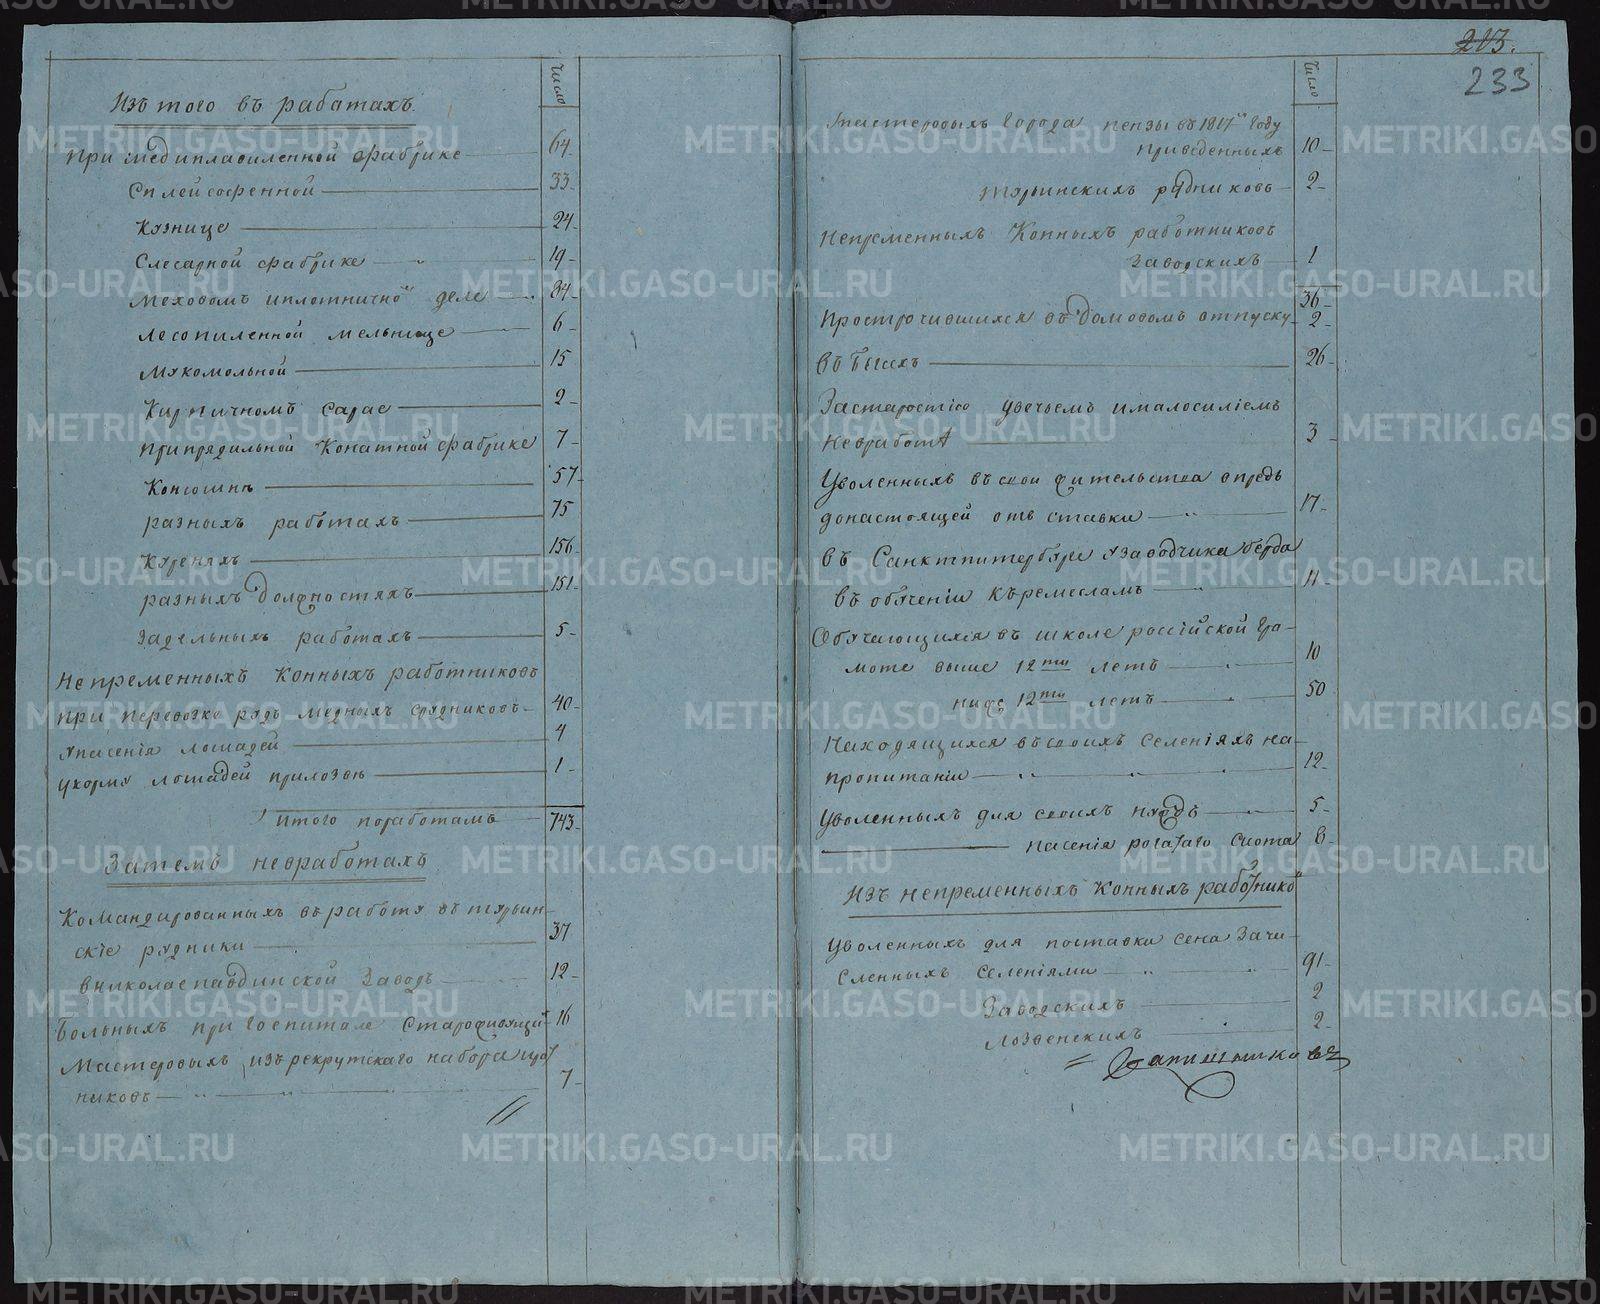 Число
Изъ того въ работахъ
При медиплавиленной фабрике 64
Сплейсофенной 33
Кузнице 24
Слесарной фабрике 19
Меховомъ иплотнично деле 34
Лесопиленной мельнице 6
Мукомольной 15
Кирпичномъ сарае 2
Припрядильной Конатной фабрике 7
Конюшнъ 57
разныхъ работахъ 75
Куреняхъ 156
разныхъ должностяхъ 151
Задельныхъ работахъ 5
Непременныхъ Конныхъ работниковъ
при перевозке рудъ медныхъ срудниковъ 40
упасенія лошадей 4
укорму лошадей 1
Итого поработамъ 743
Затемъ невработахъ
Командированныхъ вработу втурьин
скіе рудники 37
вниколаепавдинской Заводъ 12
Больныхъ при госпитале 16
Мастеровыхъ изъ рекрутскаго набора
никовъ 7
213.
233
Число
Мастеровыхъ города пензы въ 1817м году
приведенныхъ 10
турьинскихъ рудниковъ 2
Непременныхъ Конныхъ работниковъ
Заводскихъ 1
36
Просрочившихся въ домовомъ отпуску 2
въ бегахъ 26
Застаростію увечьемъ ималосиліемъ
невработъ 3
Уволенныхъ въ свои жительства впредь
донастоящей отв ставки 17
въ Санктпитербурге узаводчика берда
въ обученіи къремесламъ 11
Обучающихся въ школе россійской гра
моте выше 12ти летъ 10
ниже 12ти летъ 50
Находящихся въсвоихъ селеніяхъ на
пропитаніи 12
Уволенныхъ для своихъ нуждъ 5
пасенія рогатаго скота 8
Изъ непременныхъ Конныхъ работнико
Уволенныхъ для поставки сена Зачи
сленныхъ селеніями 91
Заводскихъ 2
Лозвенскихъ 2
METRIKI.GASO-URAL.RU